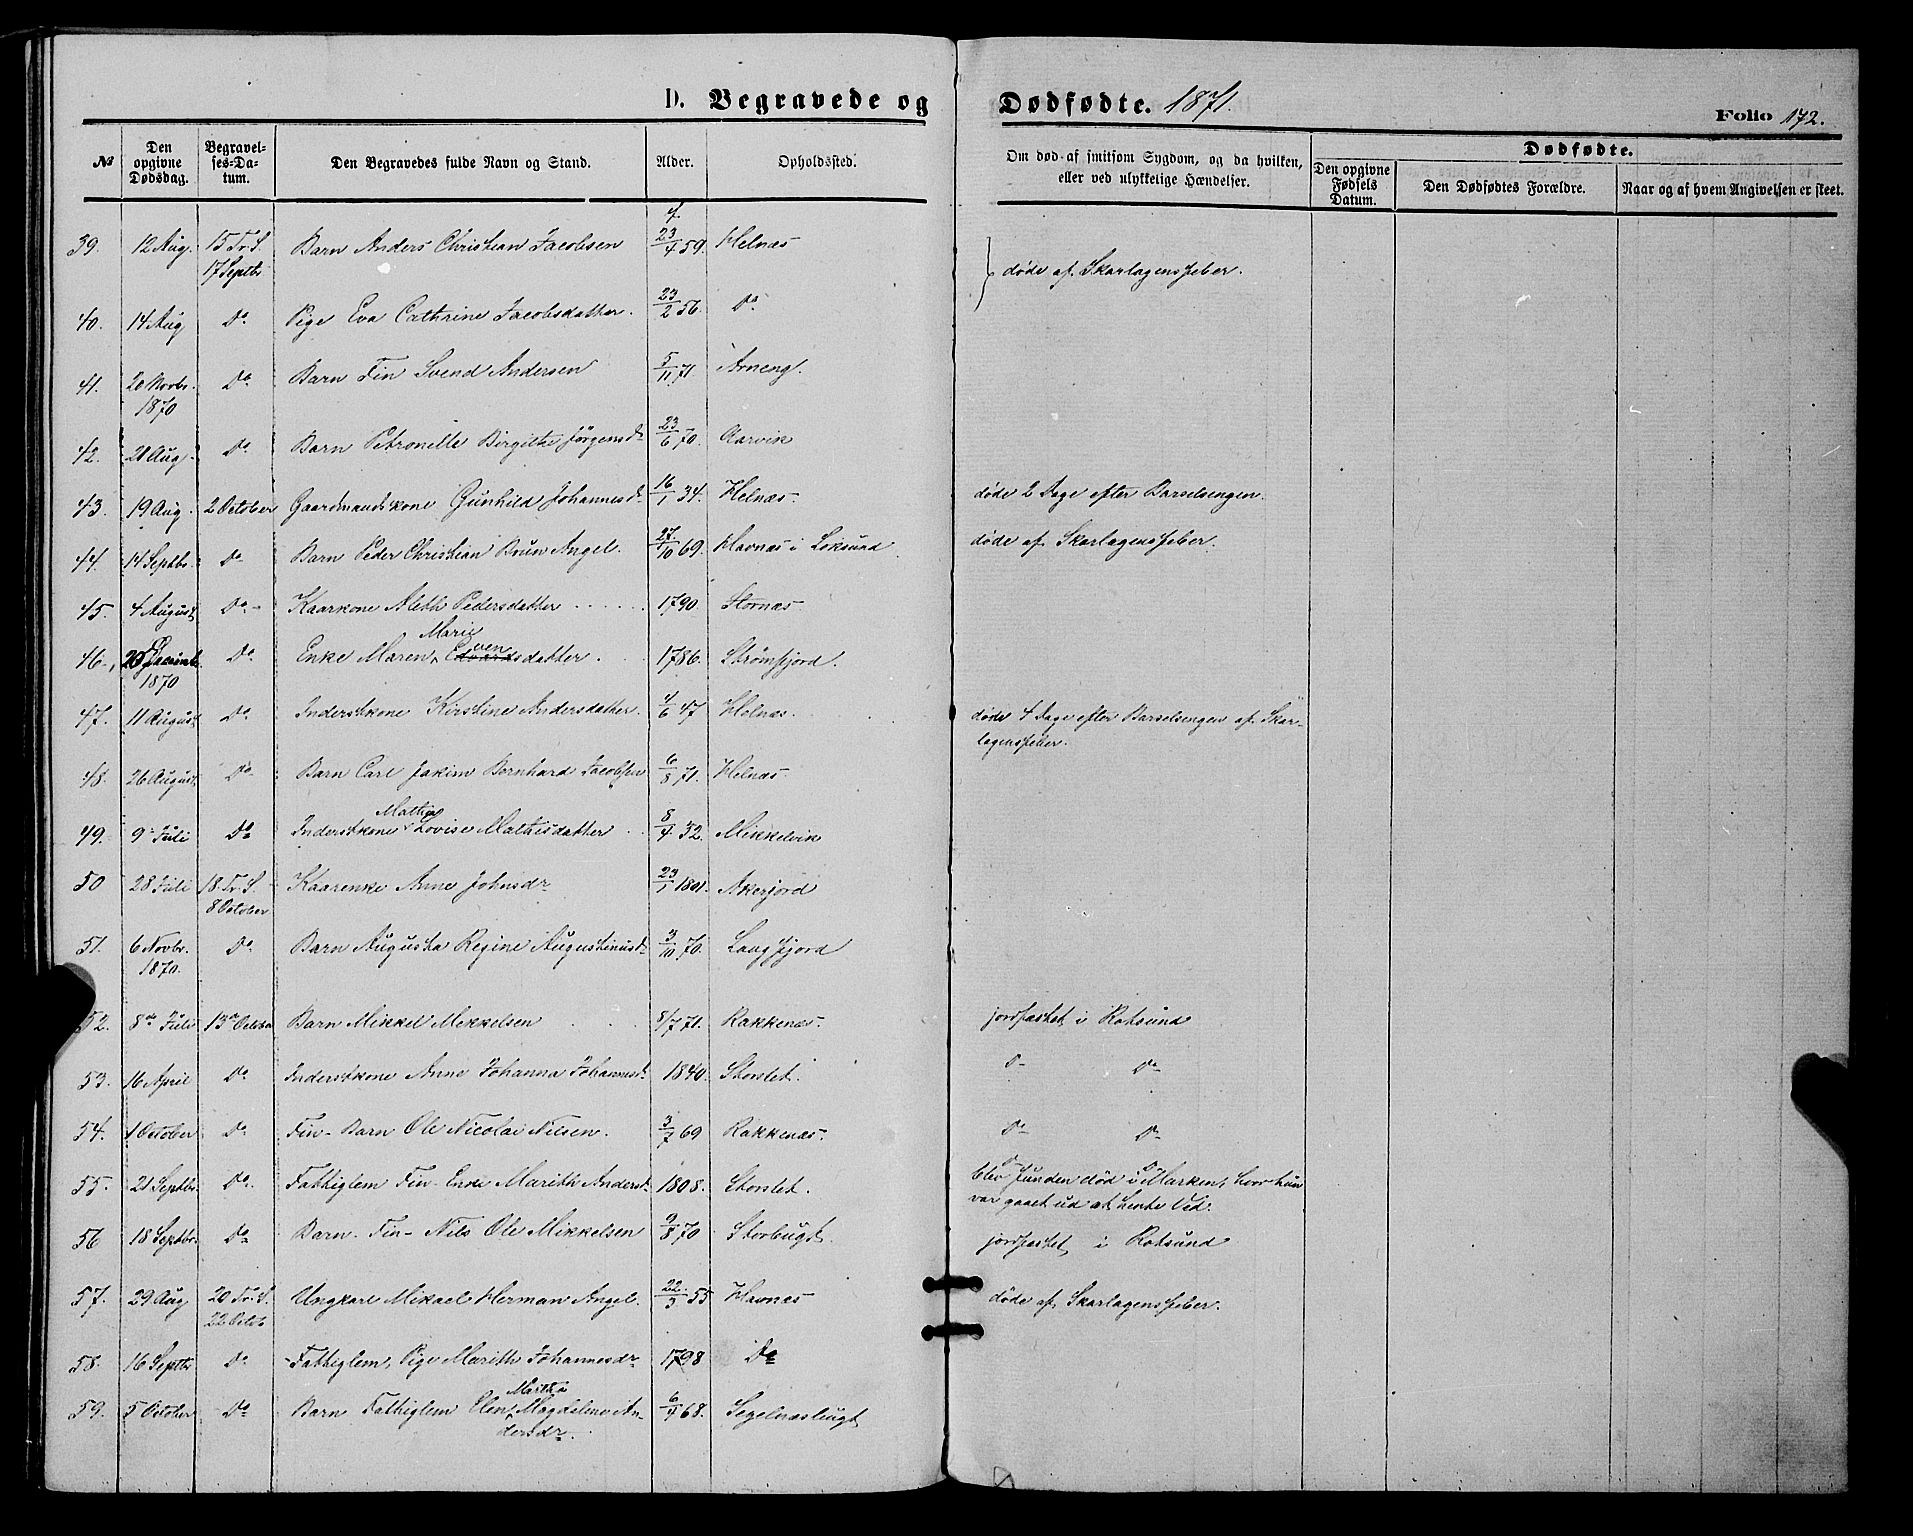 D. Begravede og Dødfødte. 1871.
Folio 172.
№
Den opgivne Dødsdag.
Begravelses-Datum.
Den Begravedes fulde Navn og Stand.
Alder.
Opholdssted.
Om død af smitsom Sygdom, og da hvilken, eller ved ulykkelige Hændelser.
Dødfødte.
Den opgivne Fødsels Datum.
Den Dødfødtes Forældre.
Naar og af hvem Angivelsen er skeet.
39. 12 Aug. 15 Tr. S. 17 Septbr Barn Anders Christian Jacobsen 23/4 59. Helnæs } døde af Skarlagensfeber.
40. 14 Aug Do. Pige Eva Cathrine Jacobsdatter. 23/2 56. Do.
41. 20 Novbr. 1870 Do. Barn Fin Svend Andersen 5/11 71 Arneng.
42. 20 Aug. Do. Barn Petronelle Birgithe Jørgensd. 23/6 70. Aarvik
43. 19 Aug. 2 October Gaardmandskone Gunhild Johannesd. 16/1 34. Helnæs. døde 2 Dage efter Barselsengen.
44. 14 Septbr. Do. Barn Peder Christian Brun Angel. 27/10 69. Havnæs i Loksund døde af Skarlagensfeber.
45. 4 August Do. Kaarkone Aleth Pedersdatter 1790. Stornæs.
46. 20 Decemb. 1870 Do. Enke Maren Marie Evensdatter. 1786. Strømfjord.
47. 11 August Do. Inderstkone Kirstine Andersdatter. 4/6 47 Helnæs. døde 4 Dage efter Barselsengen af Skarlagensfeber.
48. 26 August Do. Barn Carl Joakim Bernhard Jacobsen 6/8 71. Helnæs.
49. 9 Juli Do. Inderstkone Lovise Mathisdatter 8/4 32. Mikkelvik
50 28 Juli 18. Tr. S. 8 October Kaarenke Anne Johnsdr 23/1 1801. Akerjord
51. 6 Novbr. 1870. Do. Barn Augusta Regine Augustinusd. 3/10 70. Langfjord
52. 8de Juli 13de Octobr Barn Mikkel Mikkelsen 8/7 71. Rakkenæs. jordfæstet i Rotsund
53. 16 April Do. Inderstkone Anne Johanna Johannesd. 1840. Storslet. Do Do
54. 1 October Do. Fin-Barn Ole Nicolai Nilsen. 3/7 69 Rakkenæs. Do Do
55. 21 Septbr Do. Fattiglem Fin-Enke Marith Andersd. 1808. Storslet. Do Do
blev funden død i Marken, hvor hun var gaaet ud at hente Ved.
56 18 Septbr. Do Barn Fin- Nils Ole Mikkelsen 9/8 70 Storbugt. jordfæstet i Rotsund
57. 29 Aug 20 Tr. S. 22 Octob Ungkarl Mikael Herman Angel. 22/3 55 Havnæs døde af Skarlagensfeber.
58. 16 Septbr Do. Fattiglem, Pige Marith Johannesdr 1798 Do
59. 5 October Do Barn Fattiglem Elen Martha Magdalene Andersdr. 6/4 68. Segelnæsbugt